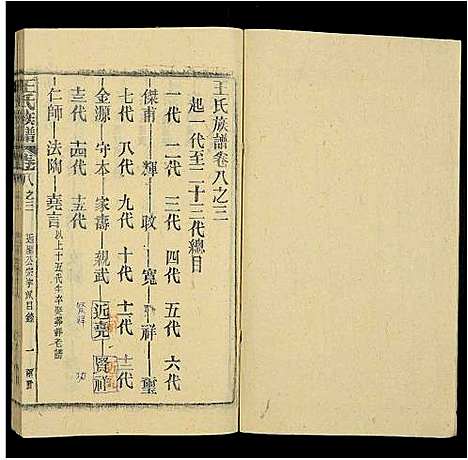 王氏族譜卷八之三
起一代至二十三代總目
一代 二代 三代 四代 五代 六代
傑甫 輝 政 寬 祥 璽
七代 八代 九代 十代 十一代 十二代
金源 守本 家濤 親武 近堯 賢祥
十三代 十四代 十五代
仁師 法陶 堯言 以上十五代生卒娶葬詳老譜
賢祥
王氏族譜 卷八之三 一